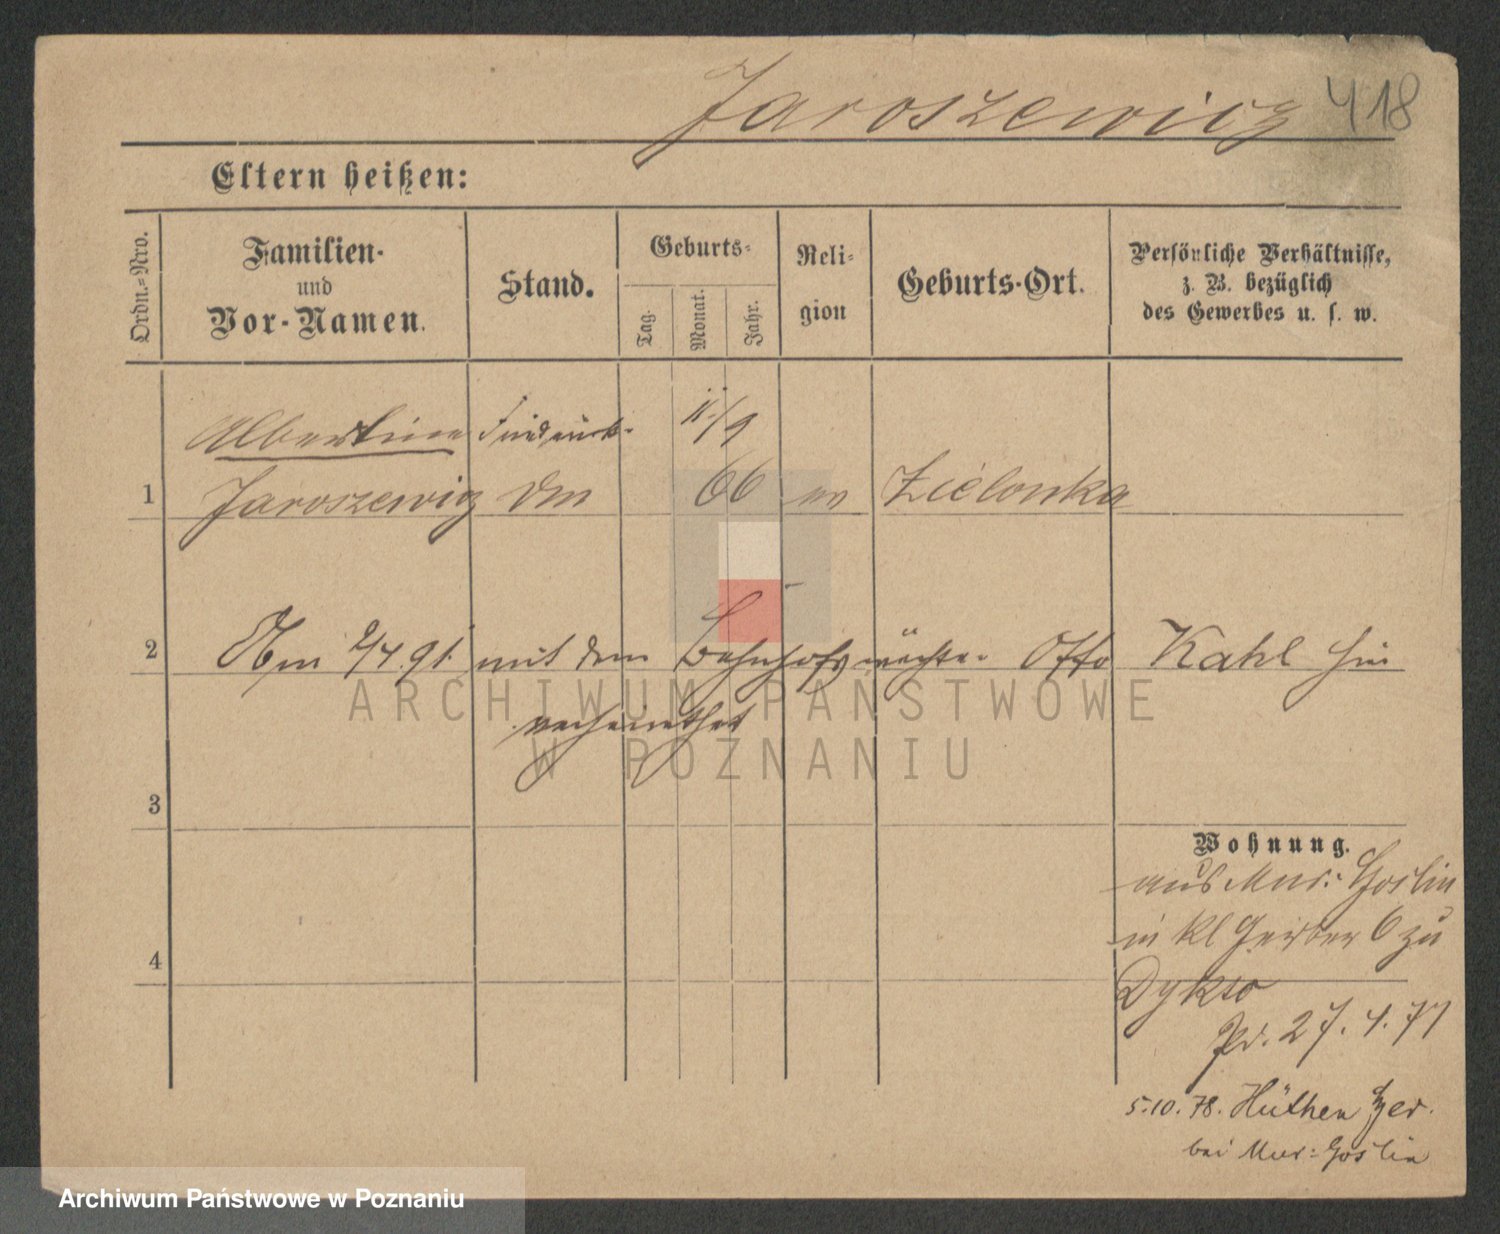 Jaroszewicz 418
Eltern heißen:
Ordn.-Nro.
Familien-
und
Vor-Namen.
Stand.
Geburts-
Tag.
Monat.
Jahr.
Reli-
gion
Geburts-Ort.
Persönliche Verhältnisse,
z. B. bezüglich
des Gewerbes u. s. w.
Albertine 11/9
1 Jaroszewicz 66 Zielonka
2 91. mit dem Bahnhofswächter Otto Kahl hier
verheirathet
3
Wohnung.
aus Mur: Goslin
in kl Gerber 6 zu
4
Dykso
27. 4. 77
5.10.78. Hüthen
bei Mur: Goslin
ARCHIWUM PAŃSTWOWE
W POZNANIU
Archiwum Państwowe w Poznaniu